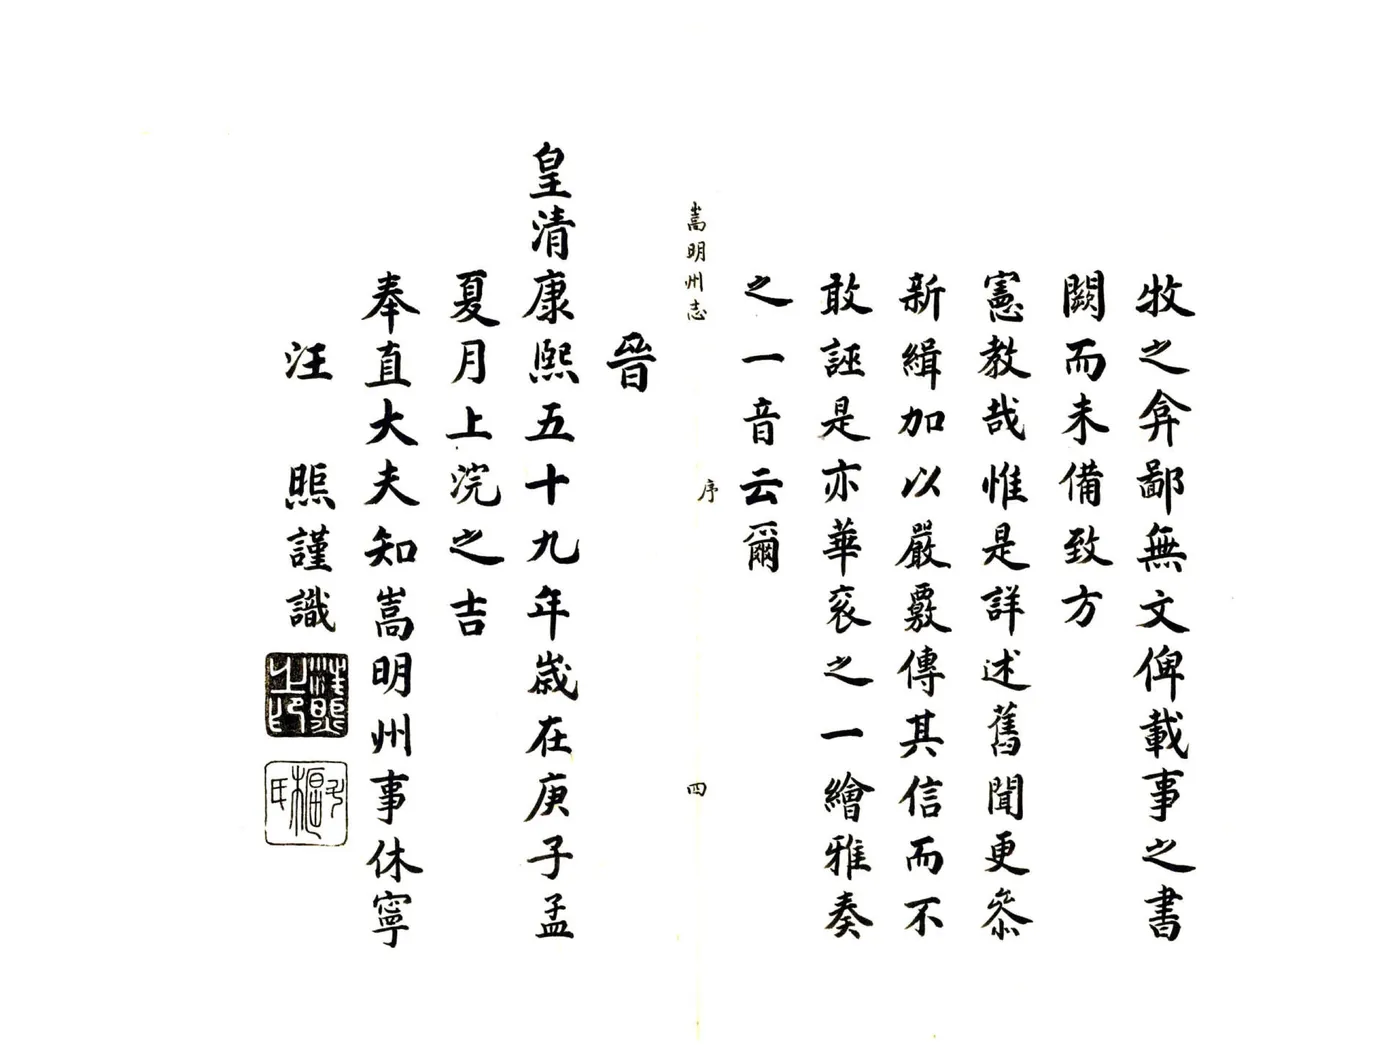 牧之弇鄙無文俾載事之書
闕而未備致方
憲教哉惟是詳述舊聞更叅
新緝加以嚴覈傳其信而不
敢誣是亦華衮之一繪雅奏
之一音云爾
嵩明州志
序
四
旹
皇清康熙五十九年歲在庚子孟
夏月上浣之吉
奉直大夫知嵩明州事休寧
汪煦謹識
汪煦之印